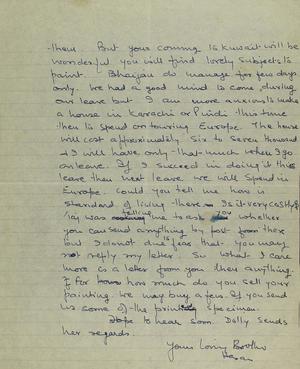 them. But your coming to Kuwait will be
wonderful you will find lovely subjects to
paint. Bhaijan do manage for few days
only. We had a good mind to come during
our leave but I am more anxious to make
a house in Karachi or Pindi this time
then to spend on touring Europe. The house
will cost approximately Six to Seven thousand
& I will have only that much when I go
on leave. If I succeed in doing it this
leave then next leave we will spend in
Europe. Could you tell me how is
standard of living there. Is it very costly?
was telling me to ask you whether
you can send anything by post from there
but I do not due is fear that you may
not reply my letter. So what I care
more is a letter from you then anything.
For how much do you sell your
painting. We may buy a few. If you send
us some of the specimen.
Hope to hear soon. Dolly sends
her regards.
Your loving Brother
Hasan